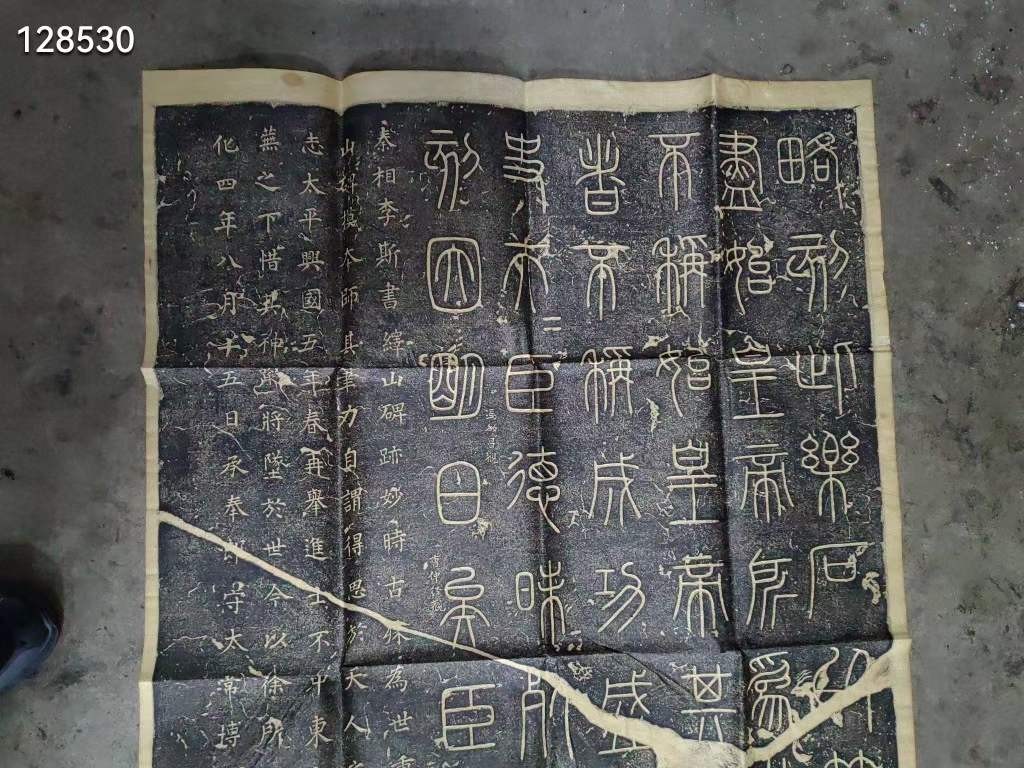 128530
略刻此樂石以
盡始皇帝所爲
不稱始皇帝其
者而稱成功盛
史夫=臣德昧死
刻因明白矣臣
秦相李斯書繹山碑跡妙時古殊為世重
山碑摹本師其筆力自謂得思於天人
志太平興國五年春再舉進士不中東
蕪之下惜其神蹤將墜於世今以徐所
化四年八月十五日承奉郎守太常博